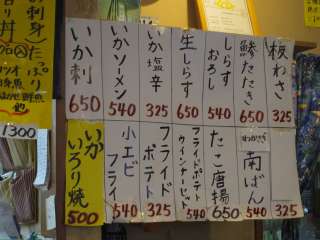 板わさ
325
鯵たたき
650
しらすおろし
540
生しらす
650
いか塩辛
325
いかソーメン
540
いか刺
650
わかさぎ
南ばん
540
325
たこ唐揚
650
フライドポテト
ウインナーセット
540
フライドポテト
325
小エビフライ
540
いかいろり焼
500
1300